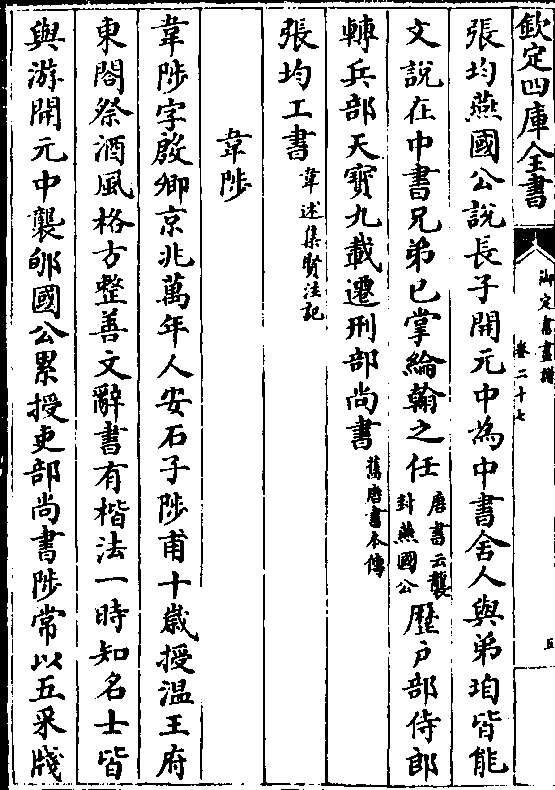 欽定四庫全書
御定書畫譜
卷二十七
五
張均燕國公說長子開元中為中書舍人與弟垍皆能
文說在中書兄弟已掌綸翰之任唐書云襲封燕國公歷户部侍郎
轉兵部天寶九載遷刑部尚書舊唐書本傳
張均工書韋述集賢注記
韋陟
韋陟字殷卿京兆萬年人安石子陟甫十歲授温王府
東閣祭酒風格方整善文辭書有楷法一時知名士皆
與游開元中襲郇國公累授吏部尚書陟常以五采牋